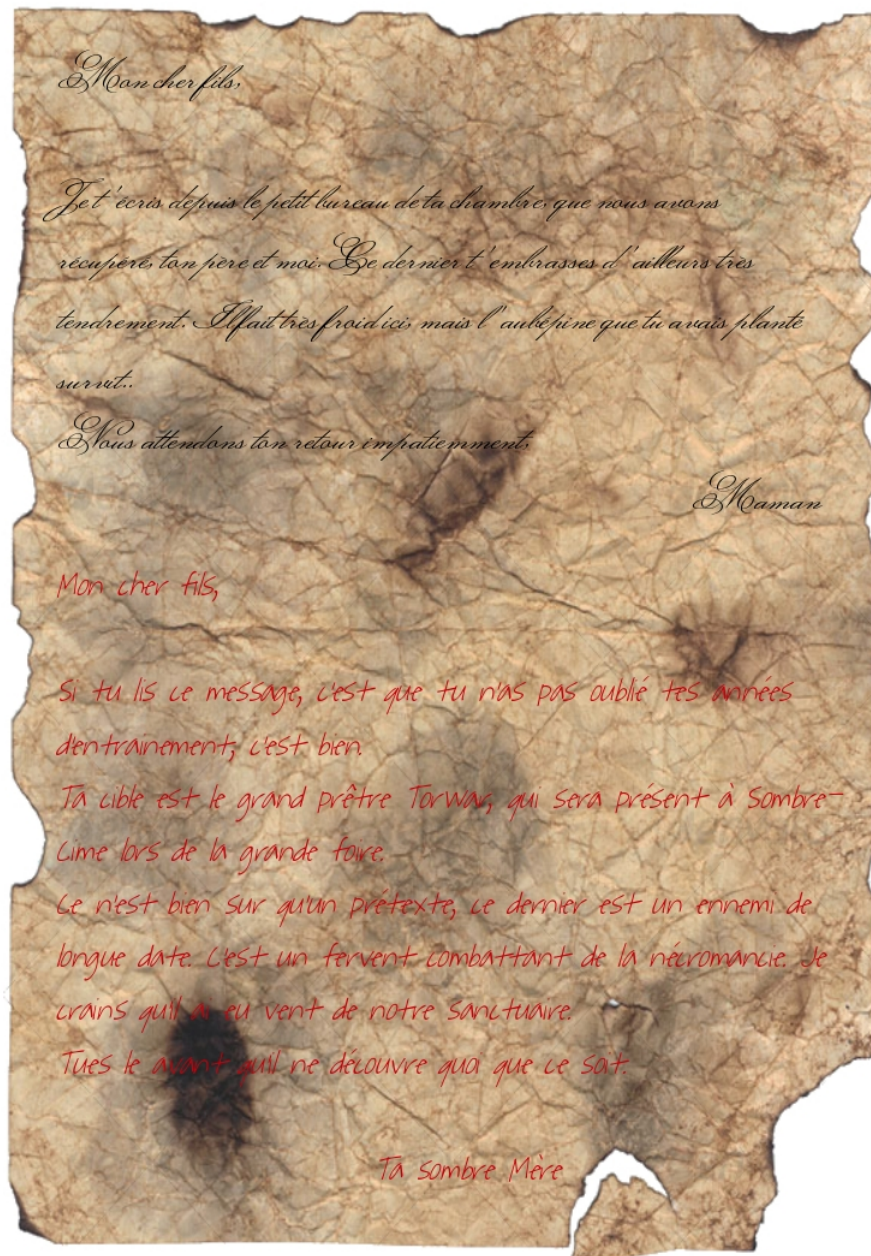 Mon cher fils,
Je t'écris depuis le petit bureau de ta chambre, que nous avons
récupéré, ton père et moi. Ce dernier t'embrasses d'ailleurs très
tendrement. Il fait très froid ici, mais l'aubépine que tu avais planté
survit..
Nous attendons ton retour impatiemment,
Maman
Mon cher fils,
Si tu lis ce message, c'est que tu n'as pas oublié tes années
d'entrainement, c'est bien.
Ta cible est le grand prêtre Torwar, qui sera présent à Sombre-
Cime lors de la grande foire.
Ce n'est bien sur qu'un prétexte, ce dernier est un ennemi de
longue date. C'est un fervent combattant de la nécromancie. Je
crains qu'il ai eu vent de notre sanctuaire.
Tues le avant qu'il ne découvre quoi que ce soit.
Ta sombre Mère